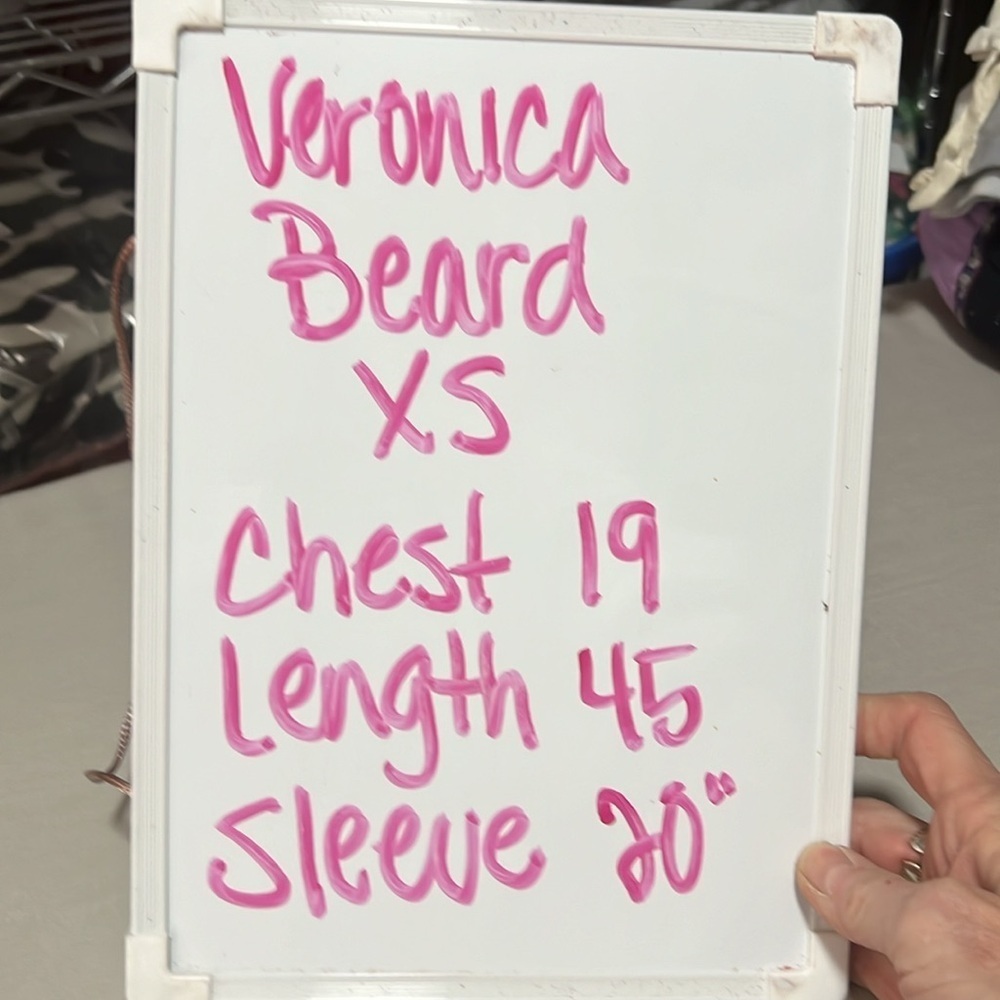 Veronica
Beard
XS
Chest 19
Length 45
Sleeve 20"